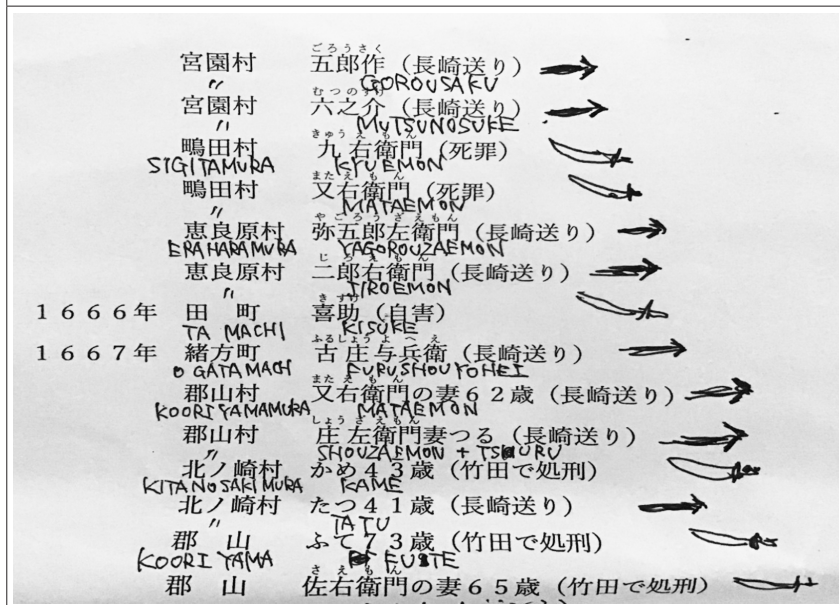 ごろうさく
宮園村 五郎作（長崎送り）
〃 GOROUSAKU
むつのすけ
宮園村 六之介（長崎送り）
〃 MUTSUNOSUKE
きゅうえもん
鴫田村 九右衛門（死罪）
SIGITAMURA KYUEMON
またえもん
鴫田村 又右衛門（死罪）
〃 MATAEMON
やごろうざえもん
恵良原村 弥五郎左衛門（長崎送り）
ERAHARAMURA YAGOROUZAEMON
じろえもん
恵良原村 二郎右衛門（長崎送り）
〃 JIROEMON
きすけ
１６６６年 田 町 喜助（自害）
TA MACHI KISUKE
ふるしょうよへえ
１６６７年 緒方町 古庄与兵衛（長崎送り）
OGATAMACHI FURUSHOUYOHEI
またえもん
郡山村 又右衛門の妻６２歳（長崎送り）
KOORIYAMAMURA MATAEMON
しょうざえもん
郡山村 庄左衛門妻つる（長崎送り）
〃 SHOUZAEMON + TSURU
北ノ崎村 かめ４３歳（竹田で処刑）
KITANOSAKIMURA KAME
北ノ崎村 たつ４１歳（長崎送り）
〃 TATU
郡 山 ふて７３歳（竹田で処刑）
KOORIYAMA FUTE
さえもん
郡 山 佐右衛門の妻６５歳（竹田で処刑）